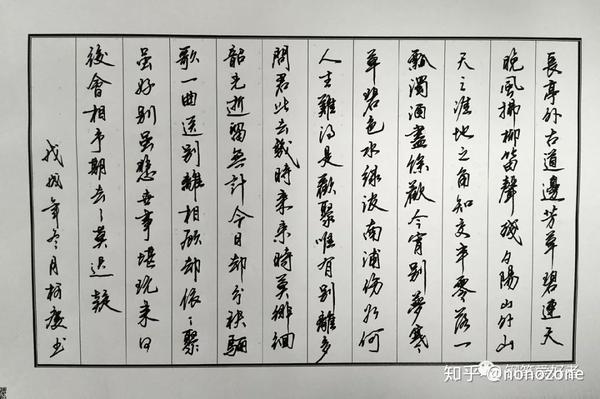 長亭外古道邊芳草碧連天
晚風拂柳笛聲殘夕陽山外山
天之涯地之角知交半零落一
瓢濁酒盡餘歡今宵別夢寒
草碧色水綠波南浦傷如何
人生難得是歡聚唯有別離多
問君此去幾時來來時莫徘徊
韶光逝留無計今日卻分袂驪
歌一曲送別離相顧卻依々聚
雖好別雖悲世事堪玩來日
後會相予期去々莫遲疑
戊戌年冬月書
知乎 @nonozone